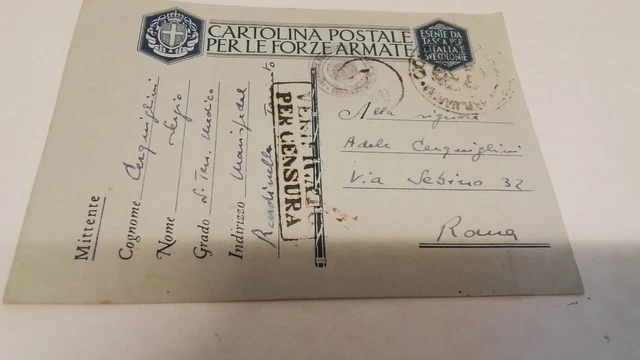 CARTOLINA POSTALE
PER LE FORZE ARMATE
ESENTE DA
TASSA PER
L'ITALIA E
SVE COLONIE
Mittente
Cognome Cerquiglini
Nome Sergio
Grado S. Ten. Medico
Indirizzo Marispedal
Taranto
VERIFICATO
PER CENSURA
Alla signora
Adele Cerquiglini
Via Sebino 32
Roma